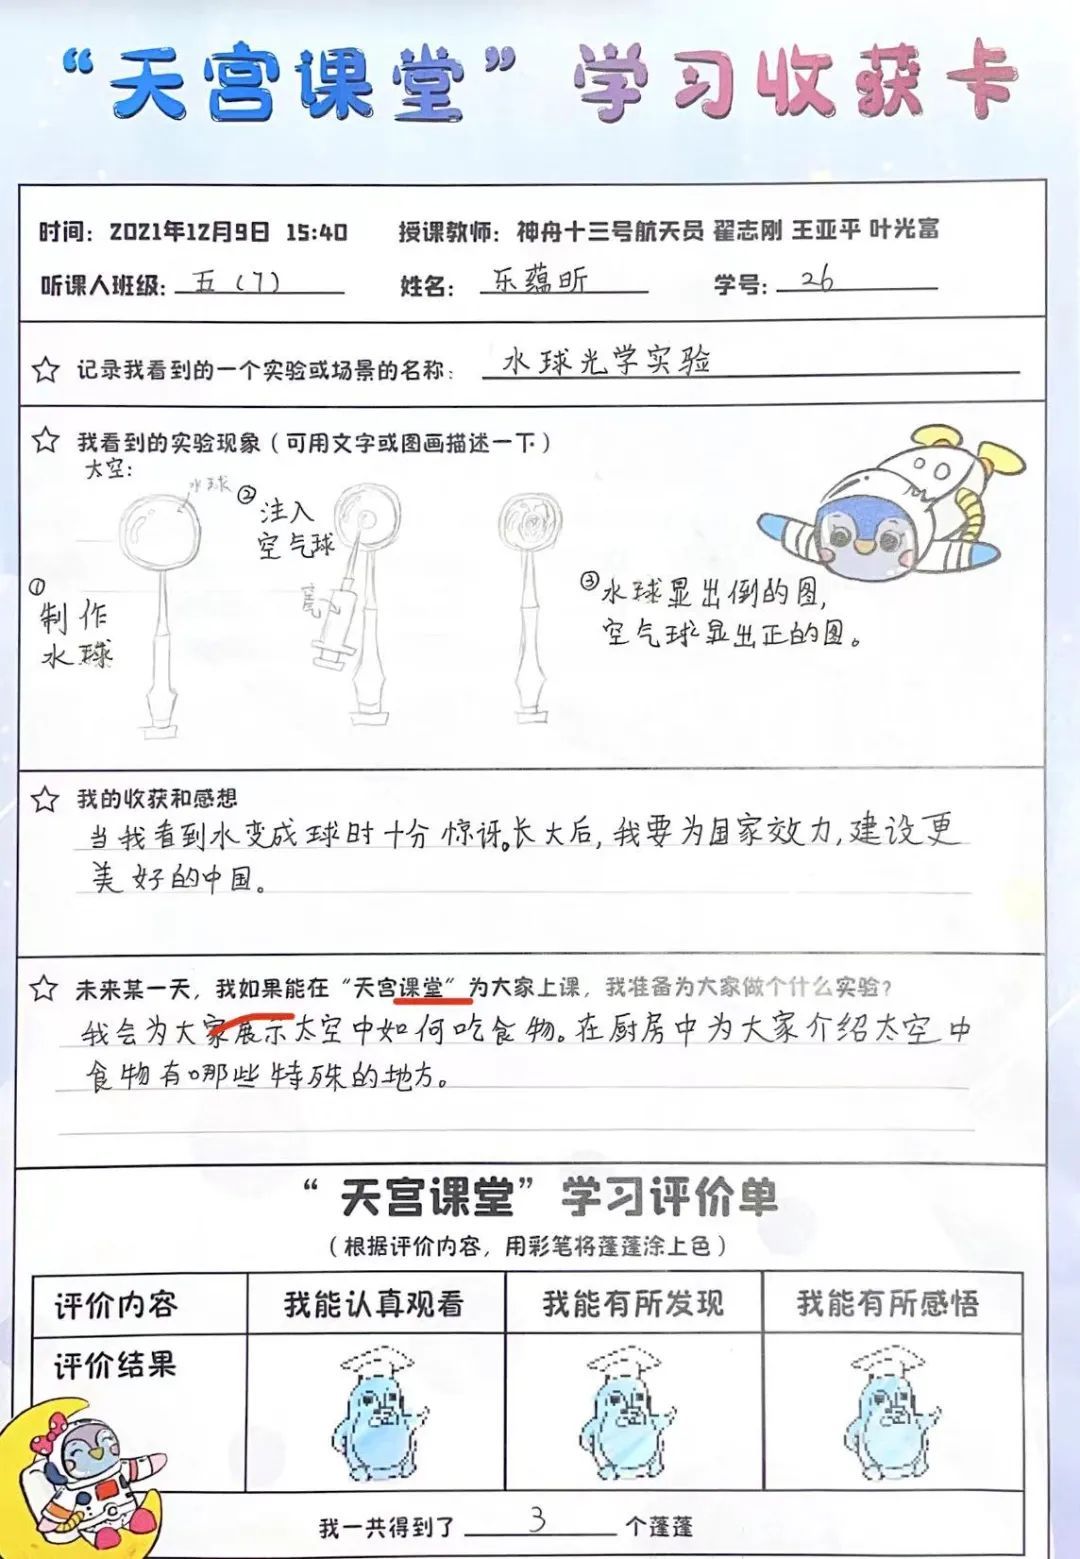 “天宫课堂”学习收获卡
时间：2021年12月9日 15:40 授课教师：神舟十三号航天员 翟志刚 王亚平 叶光富
听课人班级：五（7） 姓名：乐蕴昕 学号：26
记录我看到的一个实验或场景的名称：水球光学实验
我看到的实验现象（可用文字或图画描述一下）
太空：
水球
①
制作
水球
②
注入
空气球
③水球显出倒的图，
空气球显出正的图。
我的收获和感想
当我看到水变成球时十分惊讶。长大后，我要为国家效力，建设更
美好的中国。
未来某一天，我如果能在“天宫课堂”为大家上课，我准备为大家做个什么实验？
我会为大家展示太空中如何吃食物。在厨房中为大家介绍太空中
食物有哪些特殊的地方。
“天宫课堂”学习评价单
（根据评价内容，用彩笔将蓬蓬涂上色）
评价内容 我能认真观看 我能有所发现 我能有所感悟
评价结果
我一共得到了 3 个蓬蓬